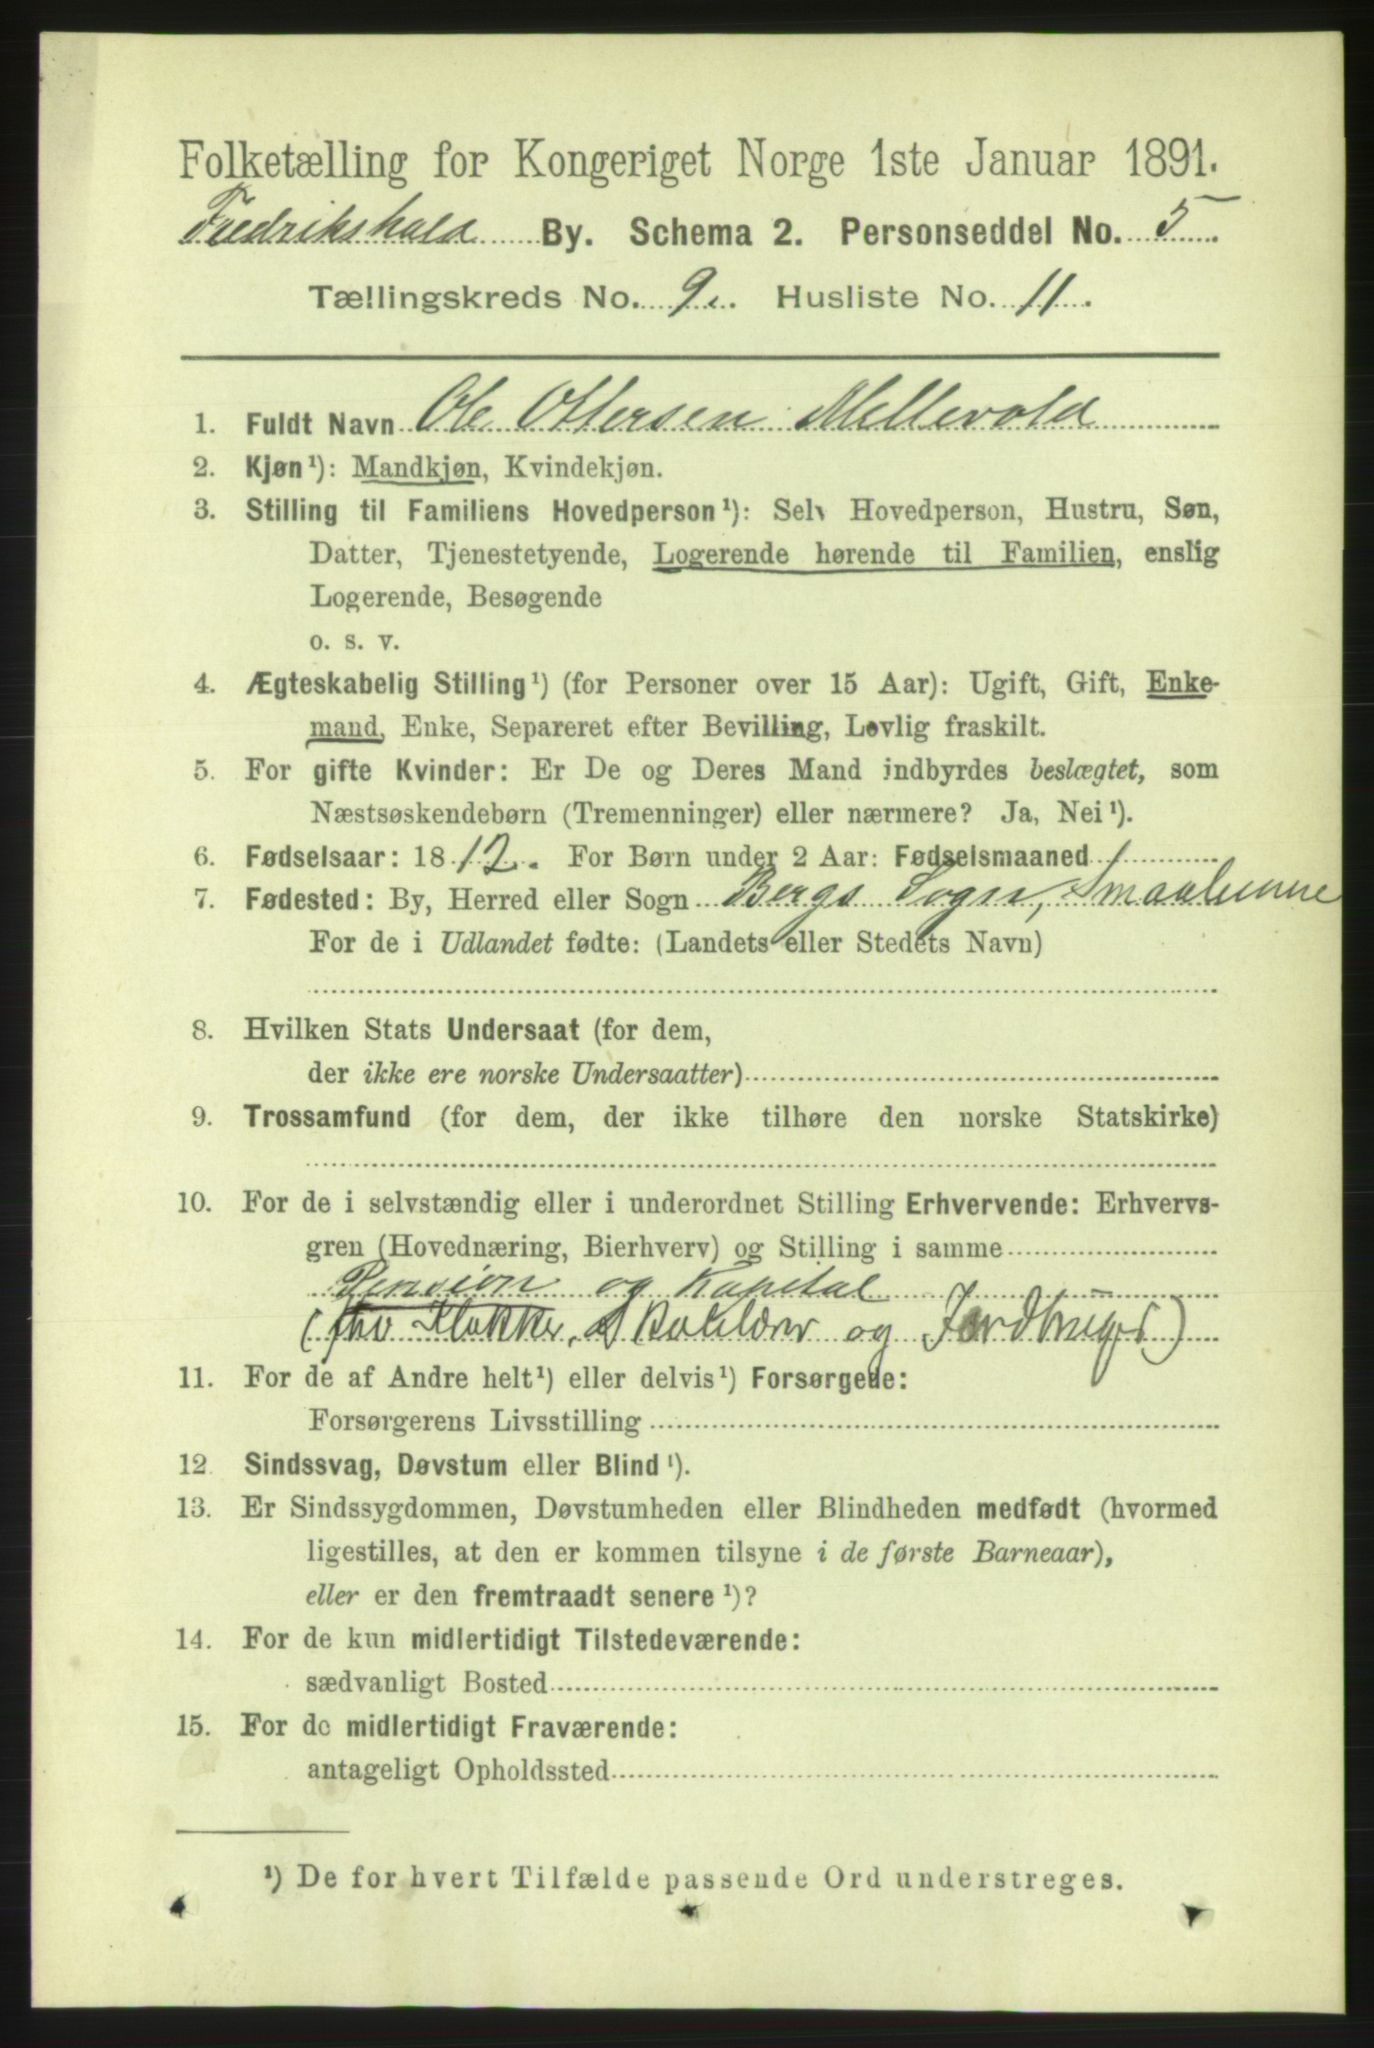 Folketælling for Kongeriget Norge 1ste Januar 1891.
Fredrikshald By. Schema 2. Personseddel No. 5
Tællingskreds No. 9. Husliste No. 11.
1. Fuldt Navn Ole Ottersen Mellevold
2. Kjøn¹): Mandkjøn, Kvindekjøn.
3. Stilling til Familiens Hovedperson¹): Selv Hovedperson, Hustru, Søn,
Datter, Tjenestetyende, Logerende hørende til Familien, enslig
Logerende, Besøgende
o. s. v.
4. Ægteskabelig Stilling¹) (for Personer over 15 Aar): Ugift, Gift, Enke-
mand, Enke, Separeret efter Bevilling, Lovlig fraskilt.
5. For gifte Kvinder: Er De og Deres Mand indbyrdes beslægtet, som
Næstsøskendebørn (Tremenninger) eller nærmere? Ja, Nei¹).
6. Fødselsaar: 1812. For Børn under 2 Aar: Fødselsmaaned
7. Fødested: By, Herred eller Sogn Bergs Sogn, Smaalenene
For de i Udlandet fødte: (Landets eller Stedets Navn)
8. Hvilken Stats Undersaat (for dem,
der ikke ere norske Undersaatter)
9. Trossamfund (for dem, der ikke tilhøre den norske Statskirke)
10. For de i selvstændig eller i underordnet Stilling Erhvervende: Erhvervs-
gren (Hovednæring, Bierhverv) og Stilling i samme
Pension og Kapital
(fhv Klokker, Skolelærer og Jordbruger)
11. For de af Andre helt¹) eller delvis¹) Forsørgede:
Forsørgerens Livsstilling
12. Sindssvag, Døvstum eller Blind¹).
13. Er Sindssygdommen, Døvstumheden eller Blindheden medfødt (hvormed
ligestilles, at den er kommen tilsyne i de første Barneaar),
eller er den fremtraadt senere¹)?
14. For de kun midlertidigt Tilstedeværende:
sædvanligt Bosted
15. For de midlertidigt Fraværende:
antageligt Opholdssted
¹) De for hvert Tilfælde passende Ord understreges.